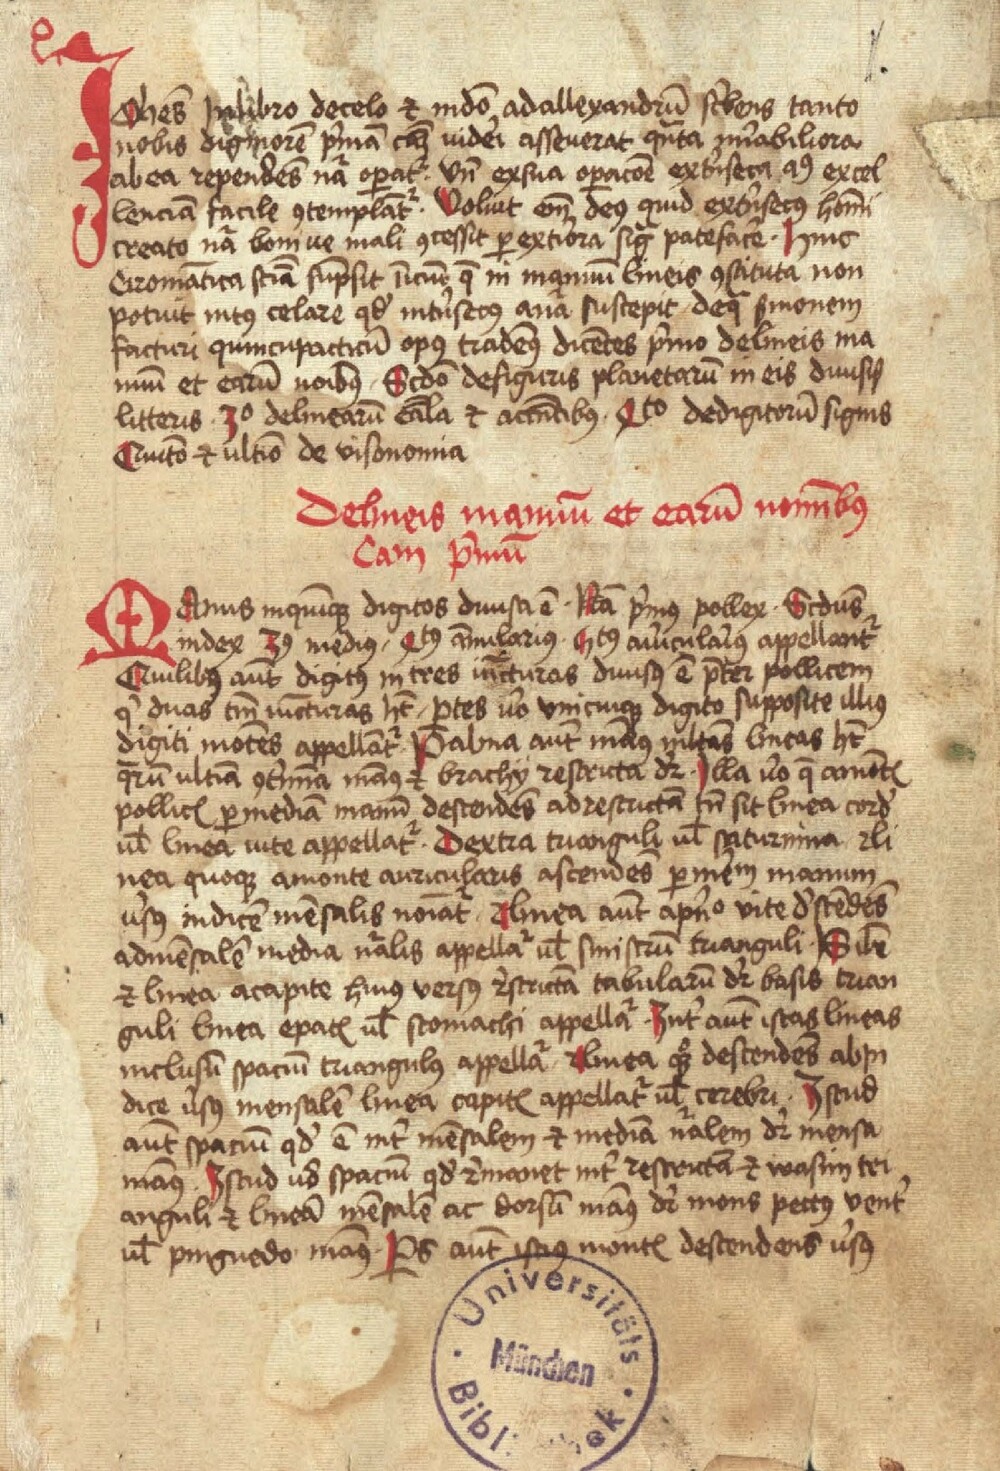 Johēs In libro de celo et mūdo ad allexandrū scbens tanto
nobis digniorē pmā cām videri asseverat qnta mirabiliora
ab ea rependēs nā opat Vn̄ ex sua opacōe extrīseca ad excel
lenciā facile 9templāt Voluit em deq quid extrīsecq homi
creato nā boni ve mali 9cessit p extiora sig patefacē Hinc
Ciromātica sciā sūpsit q in manuū lineis 9stituta non
potuit intq celare qd intrīsecq aīa suscepit de q smonem
facturi opq tradēq dicētes pmo de lineis ma
nuū et earū noībq Scdō de figuris planetarū in eis divisis
litteris 3o de linearū et accntibq Qto de digitorū signis
Quito et ultīo de visonomia
De lineis manuū et earū nominibq
Cam pmū
MAnus in quīq digitos divisa ē Nā pmq pollex Scdus
index 3q mediq Qtq annulariq qtq auriculariq appellant
Cuilibq aut digitq in tres iūcturas divisq ē pter pollicem
q duas tm iūcturas ht ptes vo vnicuiq digito supposite illiq
digiti mōtes appellāt aut manq mltas lineas ht
qrū ultīa manq et brachy restricta dr Illa vo q a monte
pollicꝭ p mediā manū descendēs ad restrictā sit linea cord
ul linea vite appellat Dextra trianguli ul saturnina li
nea quoq a monte auricularis ascendēs p manum
vsq indicē mēsalis noīat linea aut a pn̄o vite descēdēs
ad mēsalē media nalis appella ul sinistrū trianguli
et linea a capite huiq versq rstrictā tabularū dr basis trian
guli linea epatꝭ ul stomachi appella Int aut istas lineas
inclusū spaciū triangulq appella linea descendēs ab in
dice vsq mensalē linea capitꝭ appellat ul cerebri Istud
aut spaciū qd ē int mēsalem et mediā nalem dr mensa
manq Istud vo spaciū qd rmanet int restrictā et wasim tri
anguli et lineā mēsalē ac dorsū manq dr mons pectq vent
ul pinguedo manq Ps aut istiq montꝭ descendens vsq
Universitäts
München
Bibliothek